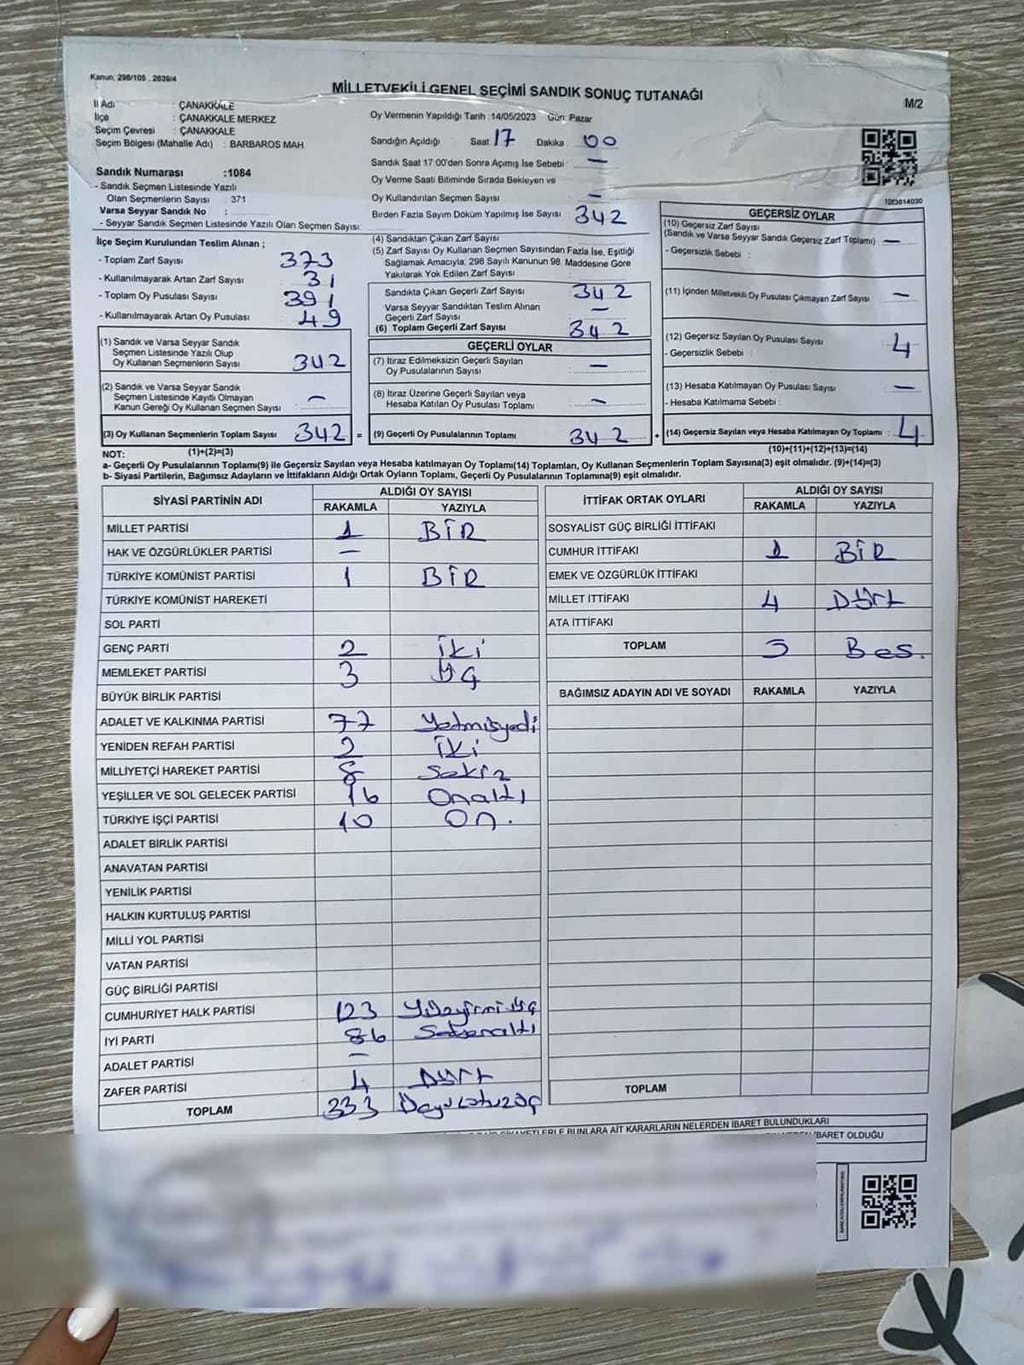 Kanun: 298/105 , 2839/4
MİLLETVEKİLİ GENEL SEÇİMİ SANDIK SONUÇ TUTANAĞI
M/2
İl Adı : ÇANAKKALE
İlçe : ÇANAKKALE MERKEZ
Seçim Çevresi : ÇANAKKALE
Seçim Bölgesi (Mahalle Adı) : BARBAROS MAH.
Oy Vermenin Yapıldığı Tarih : 14/05/2023 Gün: Pazar
Sandığın Açıldığı Saat 17 Dakika 00
Sandık Saat 17:00'den Sonra Açımış İse Sebebi : —
Oy Verme Saati Bitiminde Sırada Bekleyen ve
Oy Kullandırılan Seçmen Sayısı : —
Birden Fazla Sayım Döküm Yapılmış İse Sayısı 342
Sandık Numarası :1084
- Sandık Seçmen Listesinde Yazılı
Olan Seçmenlerin Sayısı : 371
Varsa Seyyar Sandık No :
- Seyyar Sandık Seçmen Listesinde Yazılı Olan Seçmen Sayısı
İlçe Seçim Kurulundan Teslim Alınan ;
- Toplam Zarf Sayısı 373
- Kullanılmayarak Artan Zarf Sayısı 31
- Toplam Oy Pusulası Sayısı 391
- Kullanılmayarak Artan Oy Pusulası 49
(1) Sandık ve Varsa Seyyar Sandık
Seçmen Listesinde Yazılı Olup
Oy Kullanan Seçmenlerin Sayısı 342
(2) Sandık ve Varsa Seyyar Sandık
Seçmen Listesinde Kayıtlı Olmayan
Kanun Gereği Oy Kullanan Seçmen Sayısı —
(3) Oy Kullanan Seçmenlerin Toplam Sayısı 342 =
(4) Sandıktan Çıkan Zarf Sayısı
(5) Zarf Sayısı Oy Kullanan Seçmen Sayısından Fazla İse, Eşitliği
Sağlamak Amacıyla, 298 Sayılı Kanunun 98. Maddesine Göre
Yakılarak Yok Edilen Zarf Sayısı
Sandıkta Çıkan Geçerli Zarf Sayısı 342
Varsa Seyyar Sandıktan Teslim Alınan
Geçerli Zarf Sayısı —
(6) Toplam Geçerli Zarf Sayısı 342
GEÇERLİ OYLAR
(7) İtiraz Edilmeksizin Geçerli Sayılan
Oy Pusulalarının Sayısı —
(8) İtiraz Üzerine Geçerli Sayılan veya
Hesaba Katılan Oy Pusulası Toplamı —
(9) Geçerli Oy Pusulalarının Toplamı 342 +
GEÇERSİZ OYLAR
(10) Geçersiz Zarf Sayısı
(Sandık ve Varsa Seyyar Sandık Geçersiz Zarf Toplamı) —
- Geçersizlik Sebebi :
(11) İçinden Milletvekili Oy Pusulası Çıkmayan Zarf Sayısı —
(12) Geçersiz Sayılan Oy Pusulası Sayısı 4
- Geçersizlik Sebebi :
(13) Hesaba Katılmayan Oy Pusulası Sayısı —
- Hesaba Katılmama Sebebi :
(14) Geçersiz Sayılan veya Hesaba Katılmayan Oy Toplamı : 4
NOT: (1)+(2)=(3) (10)+(11)+(12)+(13)=(14)
a- Geçerli Oy Pusulalarının Toplamı(9) ile Geçersiz Sayılan veya Hesaba katılmayan Oy Toplamı(14) Toplamları, Oy Kullanan Seçmenlerin Toplam Sayısına(3) eşit olmalıdır. (9)+(14)=(3)
b- Siyasi Partilerin, Bağımsız Adayların ve İttifakların Aldığı Oyların Toplamı, Geçerli Oy Pusulalarının Toplamına(9) eşit olmalıdır.
SİYASİ PARTİNİN ADI ALDIĞI OY SAYISI
RAKAMLA YAZIYLA
MİLLET PARTİSİ 1 BİR
HAK VE ÖZGÜRLÜKLER PARTİSİ —
TÜRKİYE KOMÜNİST PARTİSİ 1 BİR
TÜRKİYE KOMÜNİST HAREKETİ
SOL PARTİ
GENÇ PARTİ 2 İki
MEMLEKET PARTİSİ 3 üç
BÜYÜK BİRLİK PARTİSİ
ADALET VE KALKINMA PARTİSİ 77 Yetmişyedi
YENİDEN REFAH PARTİSİ 2 İki
MİLLİYETÇİ HAREKET PARTİSİ 8 Sekiz
YEŞİLLER VE SOL GELECEK PARTİSİ 16 Onaltı
TÜRKİYE İŞÇİ PARTİSİ 10 On.
ADALET BİRLİK PARTİSİ
ANAVATAN PARTİSİ
YENİLİK PARTİSİ
HALKIN KURTULUŞ PARTİSİ
MİLLİ YOL PARTİSİ
VATAN PARTİSİ
GÜÇ BİRLİĞİ PARTİSİ
CUMHURİYET HALK PARTİSİ 123 Yüzyirmiüç
İYİ PARTİ 86 Seksenaltı
ADALET PARTİSİ —
ZAFER PARTİSİ 4 Dört
TOPLAM 333
İTTİFAK ORTAK OYLARI ALDIĞI OY SAYISI
RAKAMLA YAZIYLA
SOSYALİST GÜÇ BİRLİĞİ İTTİFAKI
CUMHUR İTTİFAKI 1 BİR
EMEK VE ÖZGÜRLÜK İTTİFAKI
MİLLET İTTİFAKI 4 Dört
ATA İTTİFAKI
TOPLAM 5 Bes.
BAĞIMSIZ ADAYIN ADI VE SOYADI RAKAMLA YAZIYLA
TOPLAM
BUNLARA AİT KARARLARIN NELERDEN İBARET BULUNDUKLARI
İBARET OLDUĞU